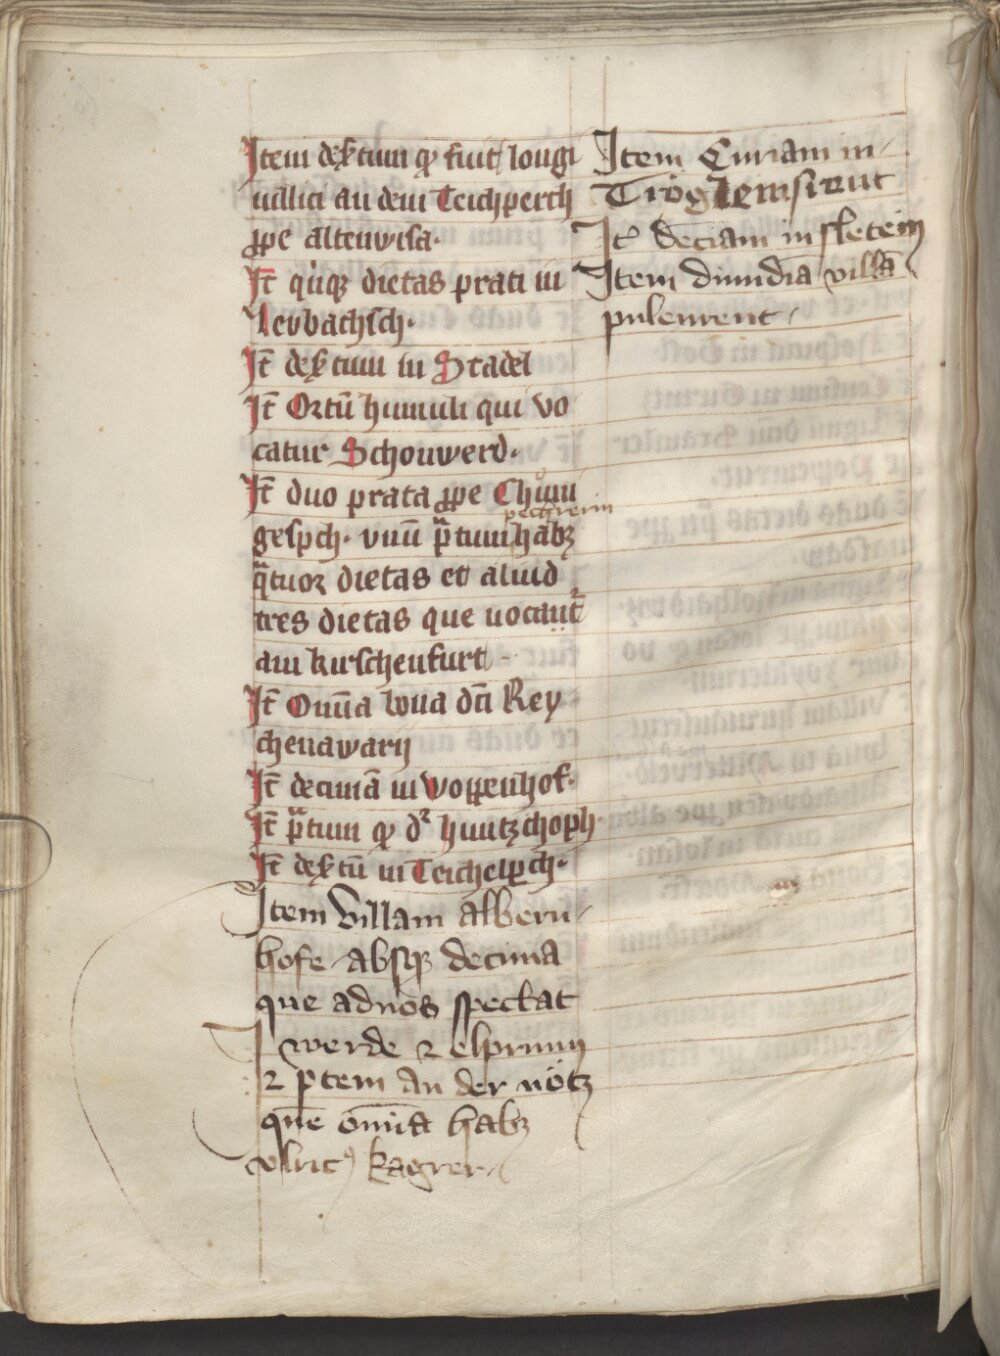 Item dextrum qd fuit longi
uillici an dem Teichperch
ꝓpe altenwisa.
It̄ q̇nqꝫ dietas prati in
Leubachsch.
It̄ dextrum in Stadel
It̄ Ortū humuli qui vo
catur Schouwerd.
It̄ duo prata ꝓpe Chu̇nı
pecigrerin
gespch. vnū pͣtum habꝫ
qͣtuor dietas et aliud
tres dietas que uocant̄
am kirschenfurt
It̄ Om̄ia bona dn̄i Rey
chenawarij
It̄ decimā in Woppenhof.
It̄ pͣtum qd dr̄ huntzchoph.
It̄ dextū in Teichelpch.
Item villam albern
hofe absqꝫ decima
que ad nos spectat
J werde ⁊ elprunn
⁊ ꝑtem An der nötz
que om̄ia habꝫ
vlricꝰ kagrer
Item Curiam in
Tröglemsrewt
It̄ deciam in sletein
Item dimidiā villā
pulenrewt